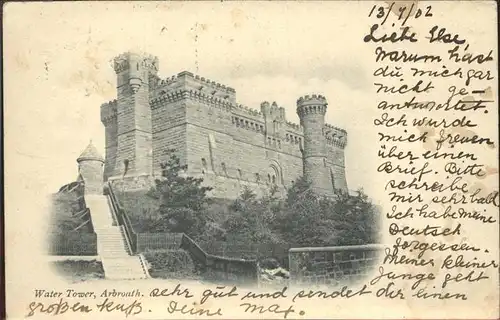 13/7/02
Liebe Else,
Warum hast
du mich gar
nicht ge-
antwortet.
Ich wurde
mich freuen
über einen
Brief. Bitte
schreibe
mir sehr bald
Ich habe meine
Deutsch
forgessen.
Meiner kleiner
junge geht
Water Tower, Arbroath. sehr gut und sendet dir einen
großen Kuß. Deine Max.